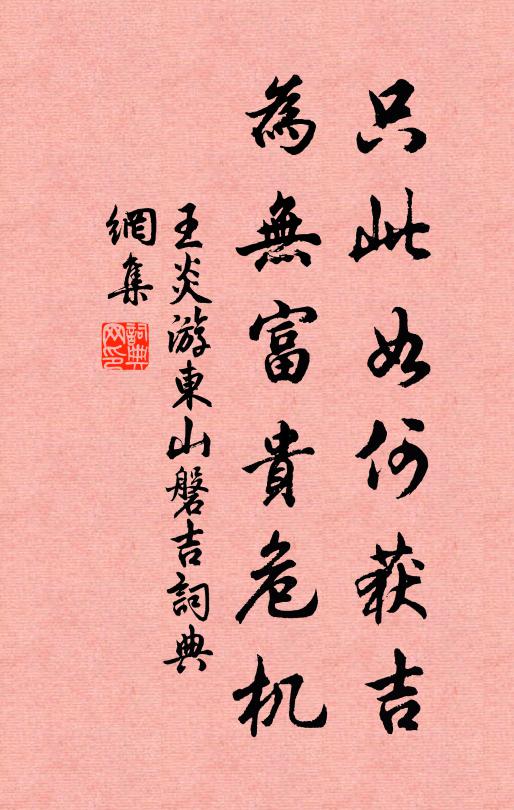 只此如何获吉
為無富貴危机
王炎游東山磐吉詞典
網集
詞典
网印